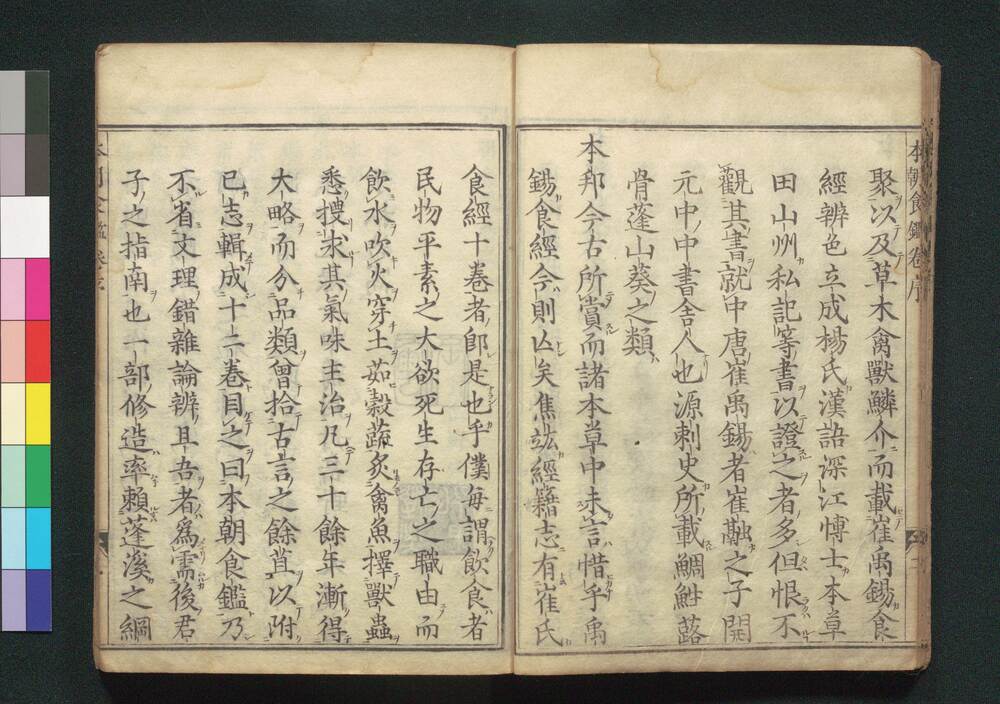 本朝食鑑卷序
聚以及草木禽獸鱗介而載崔禹錫食
經辨色立成楊氏漢語深江愽士本草
田山州私記等書以證之者多但恨不
觀其書就中唐崔禹錫者崔融之子開
元中中書舍人也源刺史所載鯛鮏蕗
骨蓬山葵之類
本邦今古所賞而諸本草中未言惜乎禹
錫食經今則亾矣焦竑經籍志有崔氏
食經十卷者卽是也乎僕每謂飲食者
民物平素之大欲死生存亡之職由而
飲水吹火穿土茹穀蔬炙禽魚擇獸蟲
悉搜求其氣味主治凡三十餘年漸得
大略而分品類曾拾古言之餘苴以附
已志輯成十二卷目之曰本朝食鑑乃
不省文理錯雜論辨且吾者爲濡後君
子之指南也一部修造率賴蓬溪之綱